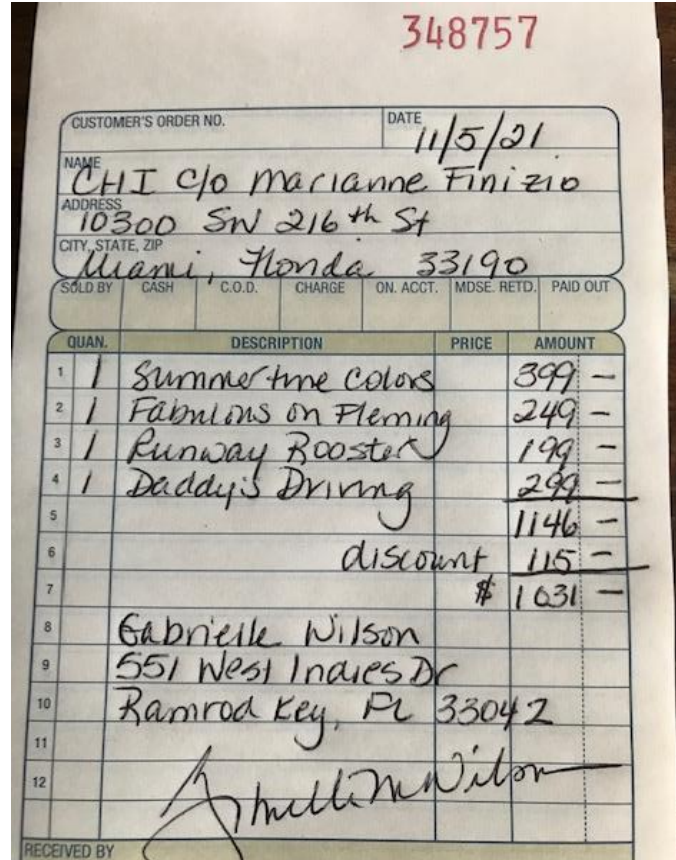 348757
CUSTOMER'S ORDER NO. DATE 11/5/21
NAME CHI c/o Marianne Finizio
ADDRESS 10300 SW 216th St
CITY, STATE, ZIP Miami, Florida 33190
SOLD BY CASH C.O.D. CHARGE ON. ACCT. MDSE. RETD. PAID OUT
QUAN. DESCRIPTION PRICE AMOUNT
1 1 Summertime Colors 399 –
2 1 Fabulous on Fleming 249 –
3 1 Runway Rooster 199 –
4 1 Daddy's Driving 299 –
5 1146 –
6 discount 115 –
7 $ 1031 –
8 Gabrielle Wilson
9 551 West Indies Dr
10 Ramrod Key, FL 33042
11
12 Gabrielle M Wilson
RECEIVED BY